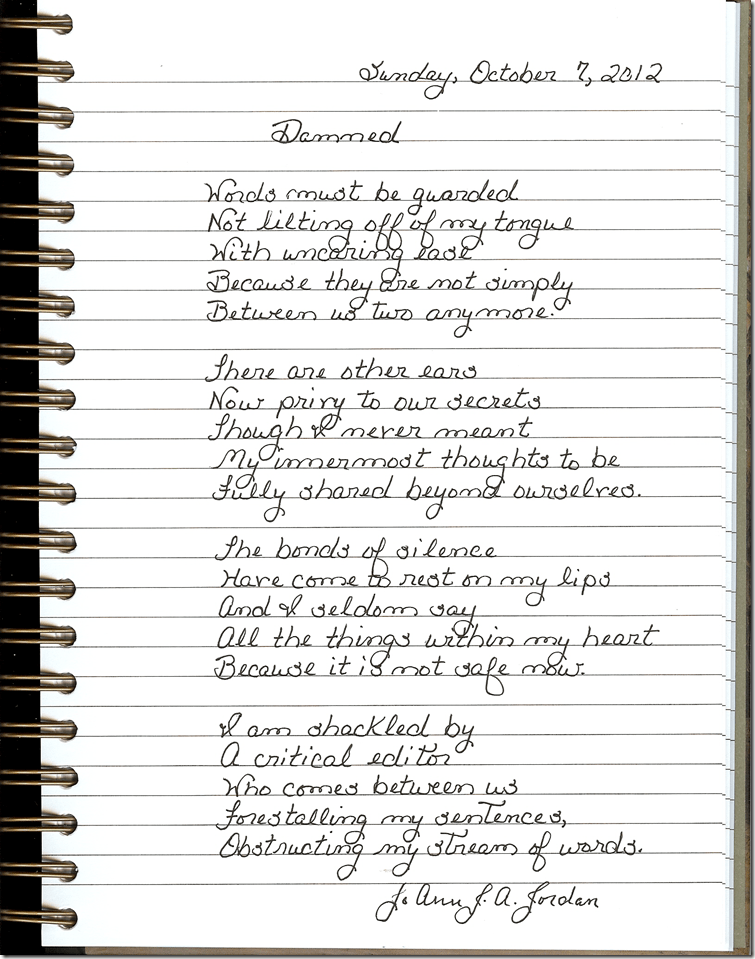 Sunday, October 7, 2012
Dammed
Words must be guarded
Not lilting off of my tongue
With uncaring ease
Because they are not simply
Between us two anymore.
There are other ears
Now privy to our secrets
Though I never meant
My innermost thoughts to be
Fully shared beyond ourselves.
The bonds of silence
Have come to rest on my lips
And I seldom say
All the things within my heart
Because it is not safe now.
I am shackled by
A critical editor
Who comes between us
Forestalling my sentences,
Obstructing my stream of words.
Jo Ann J. A. Jordan